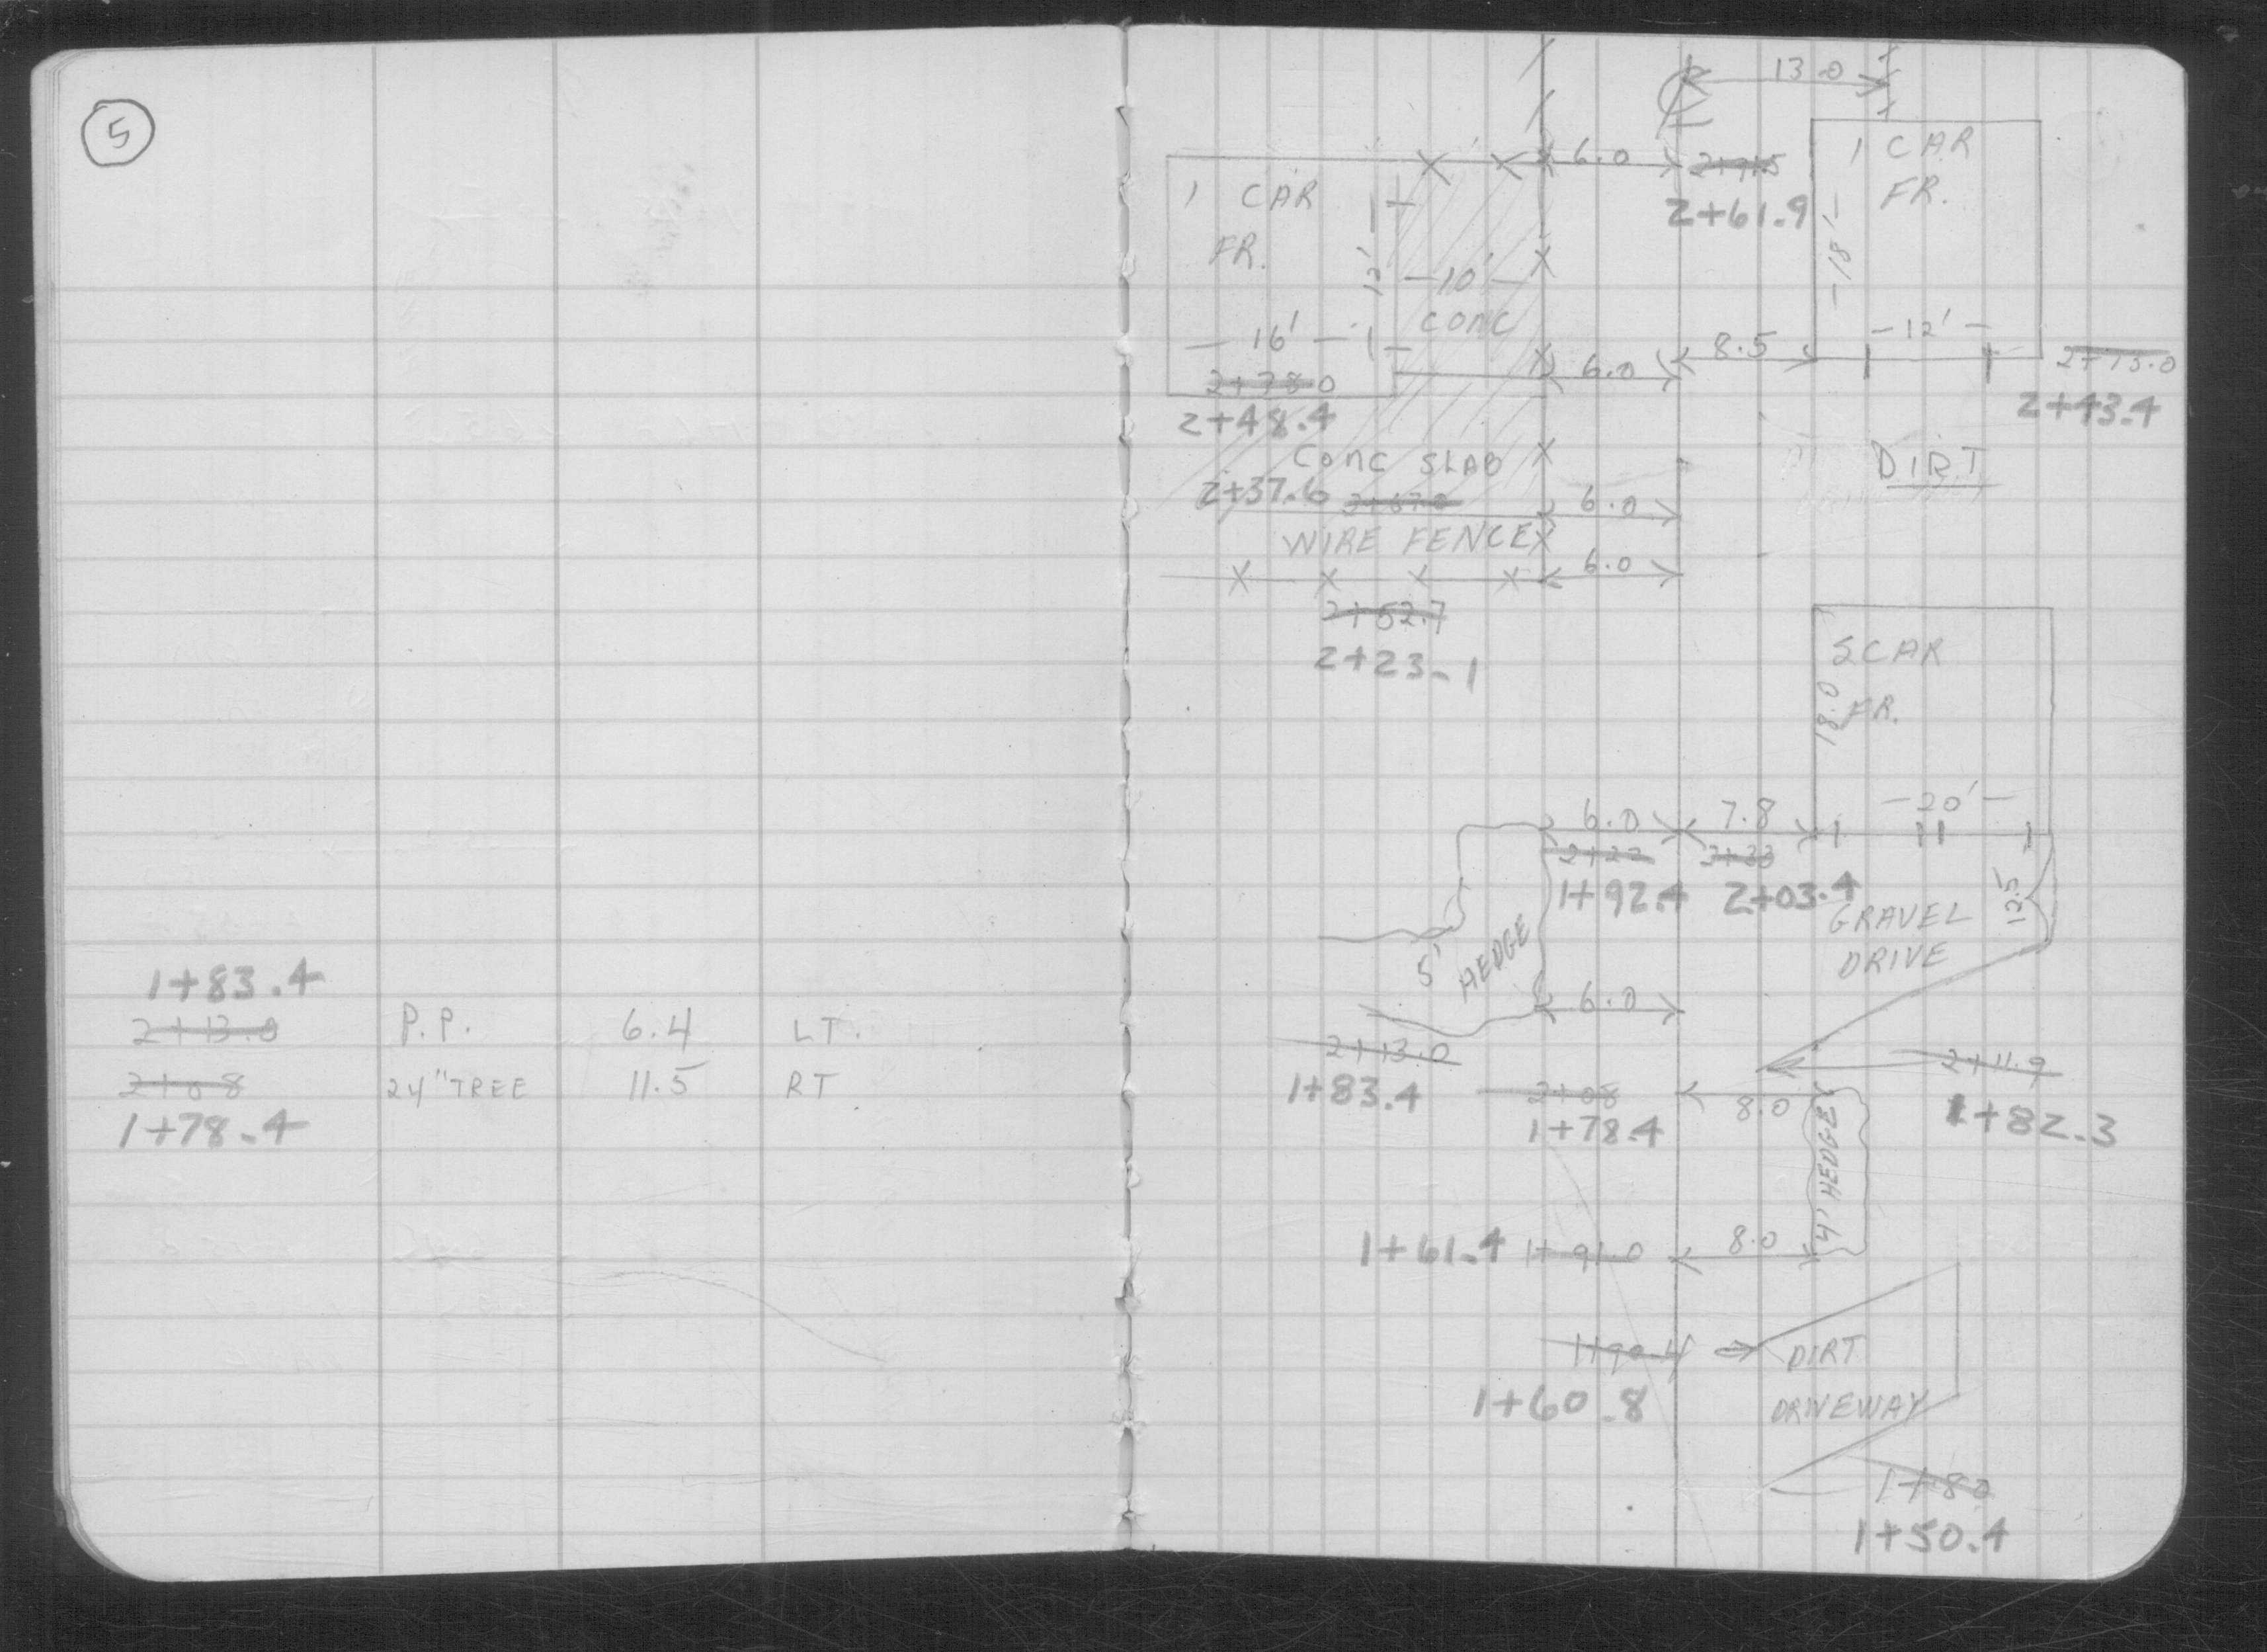 5
1+83.4
2+13.0 P.P. 6.4 LT.
2+08 24" TREE 11.5 RT
1+78.4
℄ 13.0
6.0 2+91.5
2+61.9
1 CAR
FR.
12'
-10'-
CONC
-16'-
2+78.0
2+48.4
1 CAR
FR.
-18'-
-12'-
6.0 8.5 2+73.0
2+43.4
CONC SLAB
2+37.6 2+67.2
6.0
DIRT
WIRE FENCE
6.0
2+52.7
2+23.1
2 CAR
FR.
18.0
-20'-
6.0 7.8
2+22 2+33
1+92.4 2+03.4
GRAVEL
DRIVE
12.5
5'
HEDGE
6.0
2+13.0
1+83.4
2+11.9
1+82.3
2+08 8.0
1+78.4
4' HEDGE
1+61.4 1+91.0 8.0
1+90.4 DIRT
1+60.8 DRIVEWAY
1+80
1+50.4